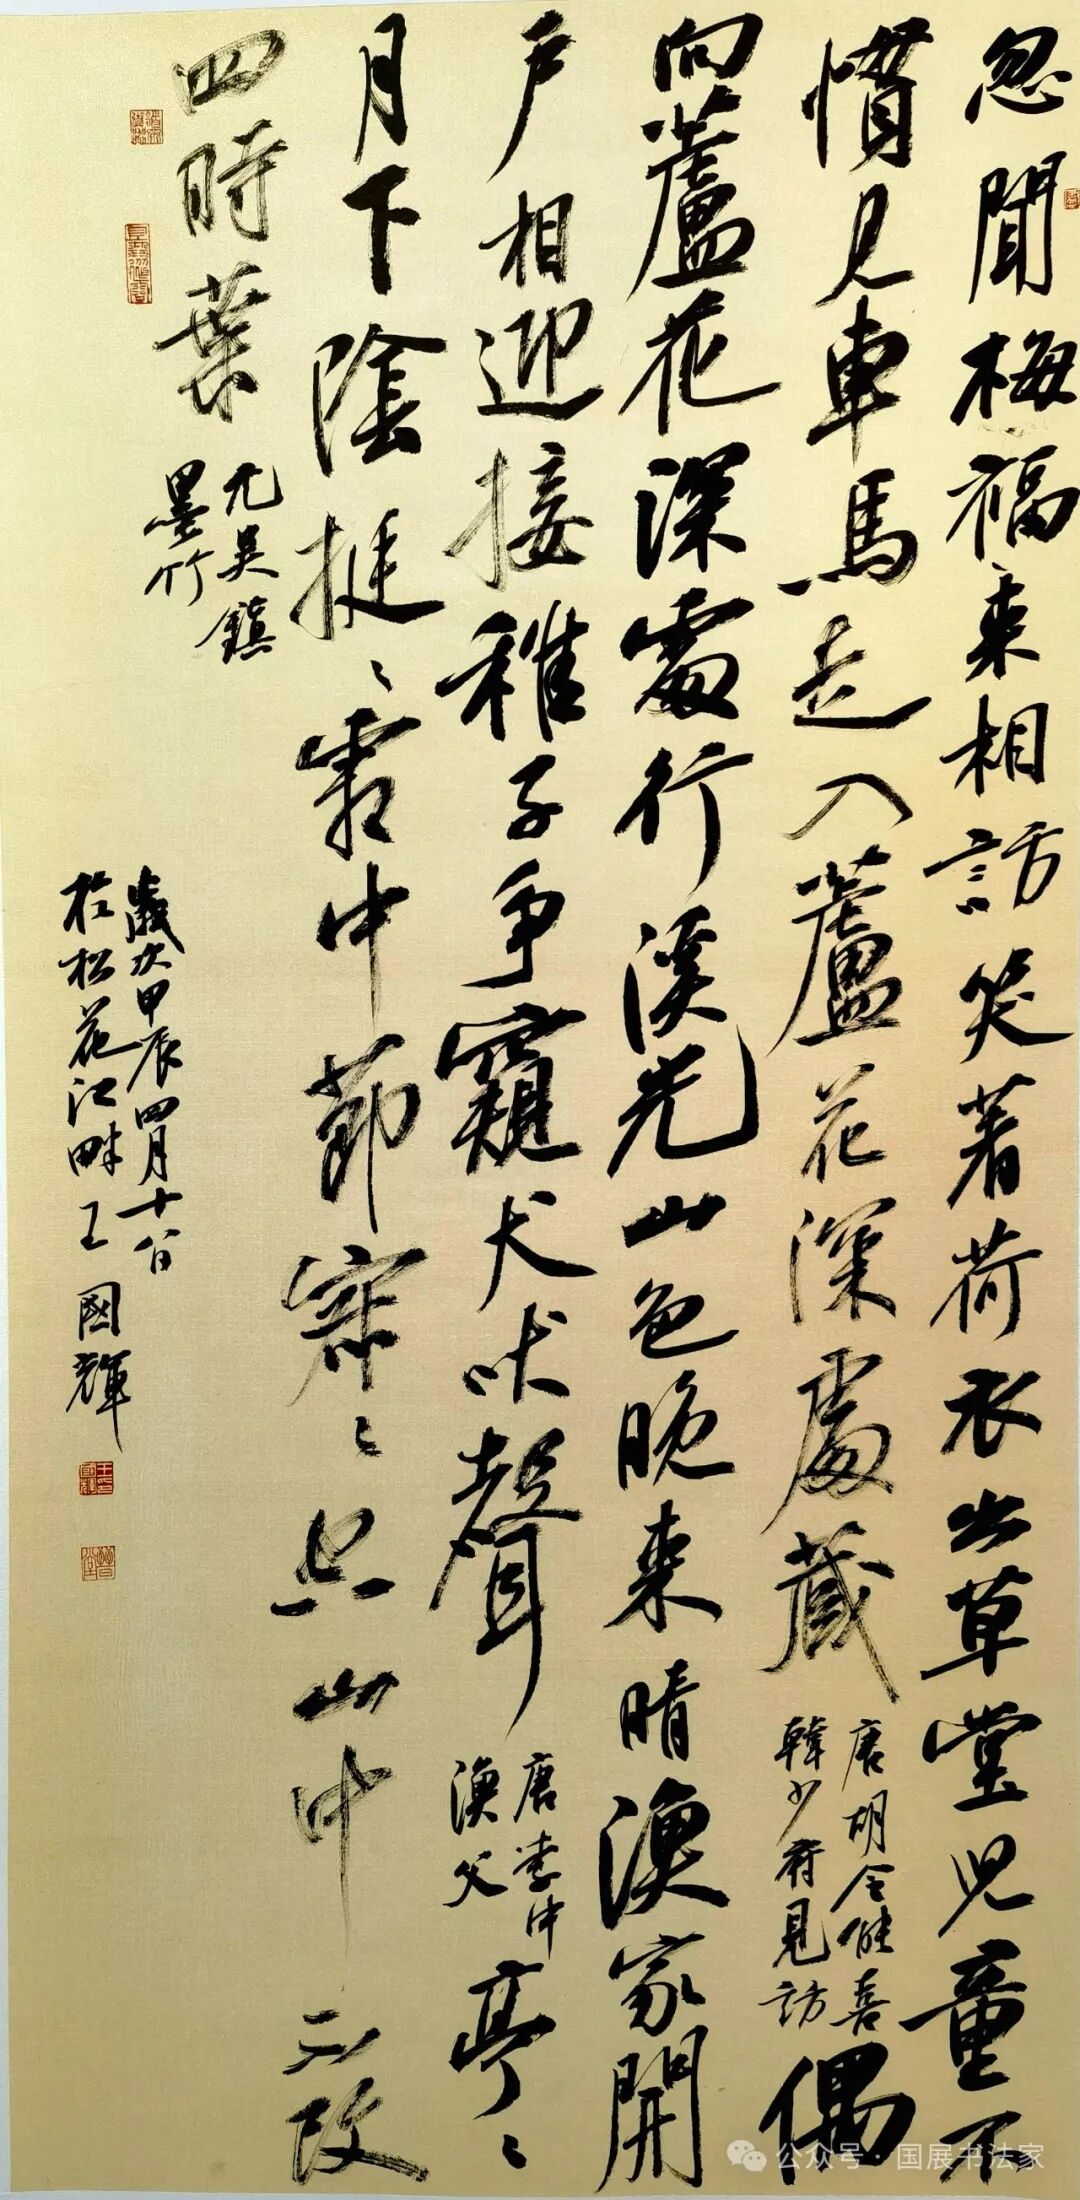 忽聞梅福來相訪笑著荷衣出草堂兒童不
慣見車馬走入蘆花深處藏
唐胡令能喜
韓少府見訪
偶
向蘆花深處行溪光山色晚來晴漁家開
戶相迎接稚子爭窺犬吠聲
唐李中
漁父
亭〻
月下陰挺〻霜中節寂〻空山中不改
四時葉
元吳鎮
墨竹
歲次甲辰四月十八日
於松花江畔王國輝
公众号·国展书法家